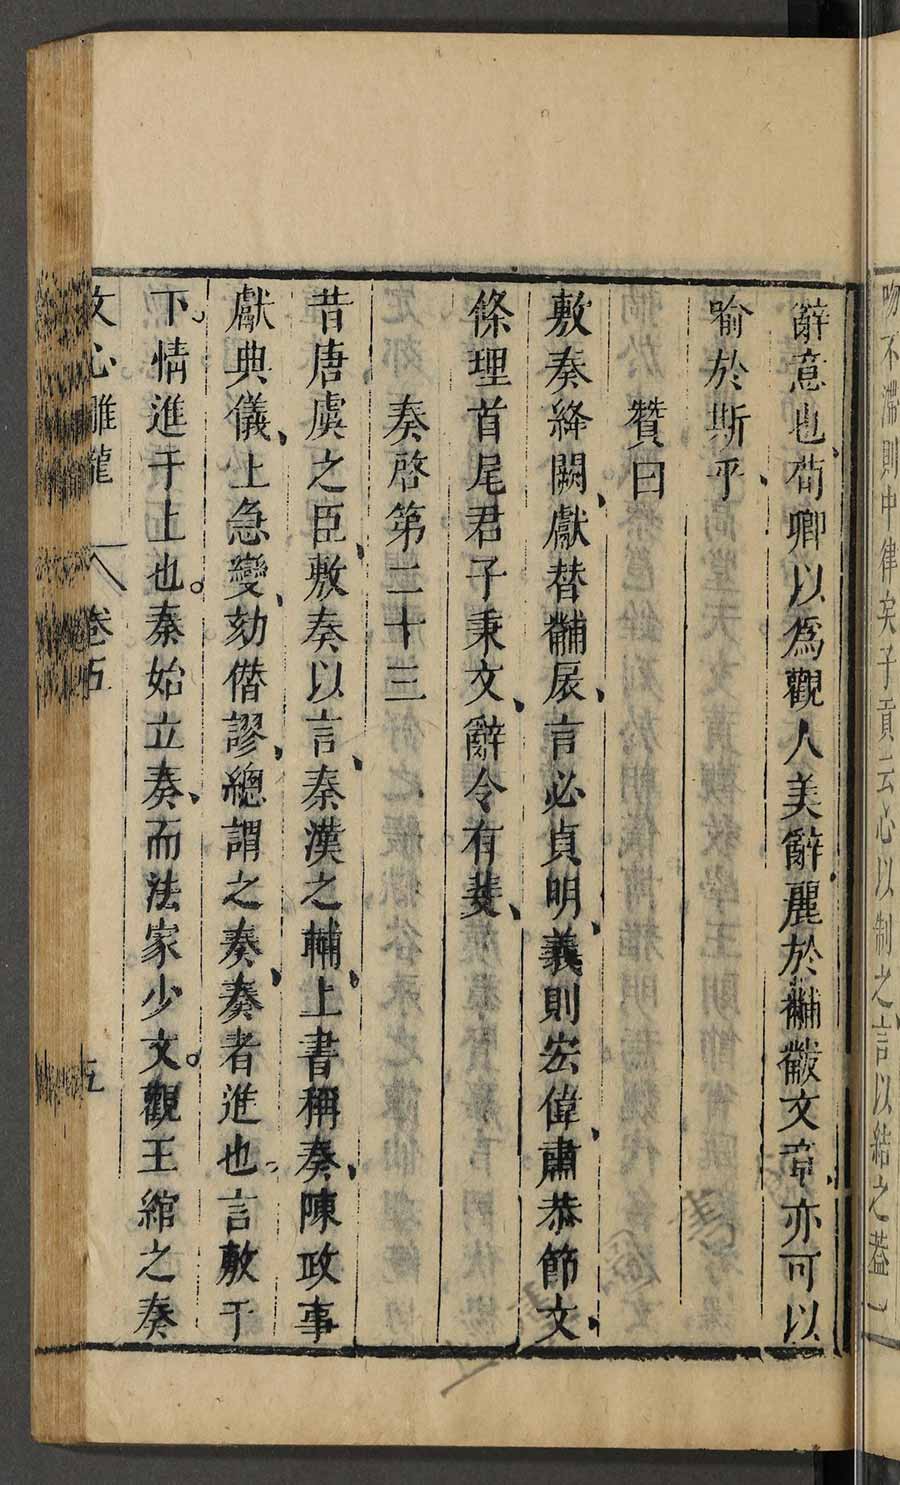 吻不滯則中律矣子貢云心以制之言以結之蓋一
辭意也荀卿以爲觀人美辭麗於黼黻文章亦可以
喻於斯乎
贊曰
敷奏絳闕獻替黼扆言必貞明義則宏偉肅恭節文
條理首尾君子秉文辭令有斐
奏啓第二十三
昔唐虞之臣敷奏以言秦漢之輔上書稱奏陳政事
獻典儀上急變劾僭謬總謂之奏奏者進也言敷于
下情進于上也秦始立奏而法家少文觀王綰之奏
文心雕龍 卷五 五